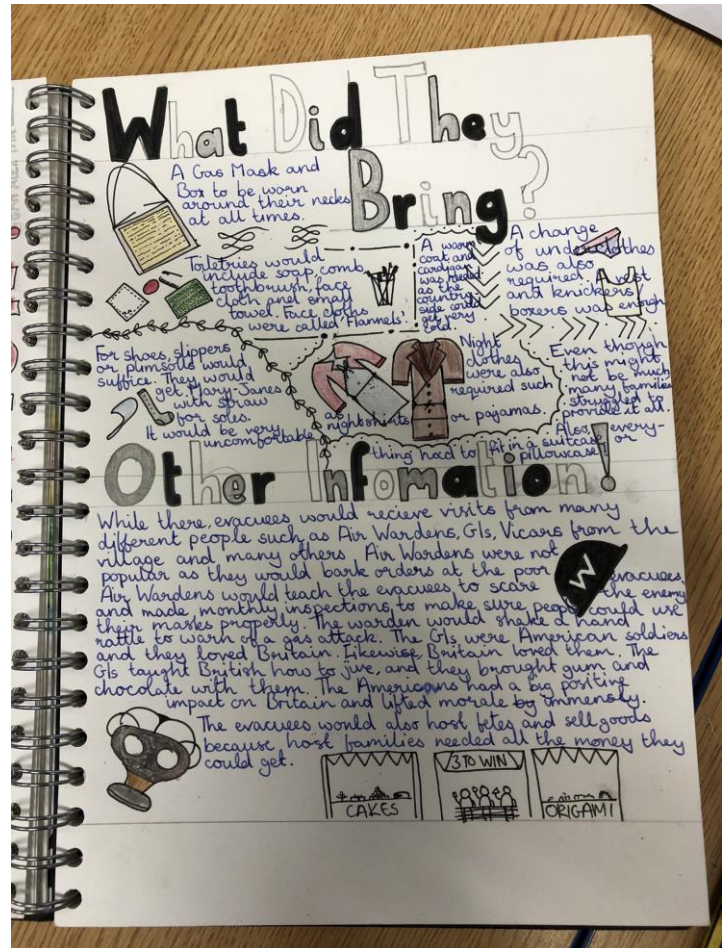 What Did They
Bring?
A Gas Mask and
Box to be worn
around their necks
at all times.
Toletries would
include soap, comb,
toothbrush, face
cloth and small
towel. Face cloths
were called 'Flannels'.
A warm
coat and
cardigan
was needed
as the
country
side could
get very
cold.
A change
of underclothes
was also
required. A vest
and knickers
boxers was enough
For shoes, slippers
or plimsolls would
suffice. They would
get Mary-Janes
with straw
for soles.
It would be very
uncomfortable
Night
clothes
were also
required such
as nightshirts or pajamas.
Even though
this might
not be much
many families
struggled to
provide it all.
Also, every-
thing had to fit in a suitcase or
pillowcase
Other Infomation!
While there, evacuees would recieve visits from many
different people such as Air Wardens, GIs, Vicars from the
village and many others. Air Wardens were not
popular as they would bark orders at the poor evacuees.
Air Wardens would teach the evacuees to scare the enemy
and made monthly inspections to make sure people could use
their masks properly. The warden would shake a hand
rattle to warn of a gas attack. The GIs were American soldiers
and they loved Britain. Likewise Britain loved them. The
GIs taught British how to jive, and they brought gum and
chocolate with them. The Americans had a big positive
impact on Britain and lifted morale by immensly.
W
The evacuees would also host fetes and sell goods
because host families needed all the money they
could get.
CAKES
3 TO WIN
ORIGAMI